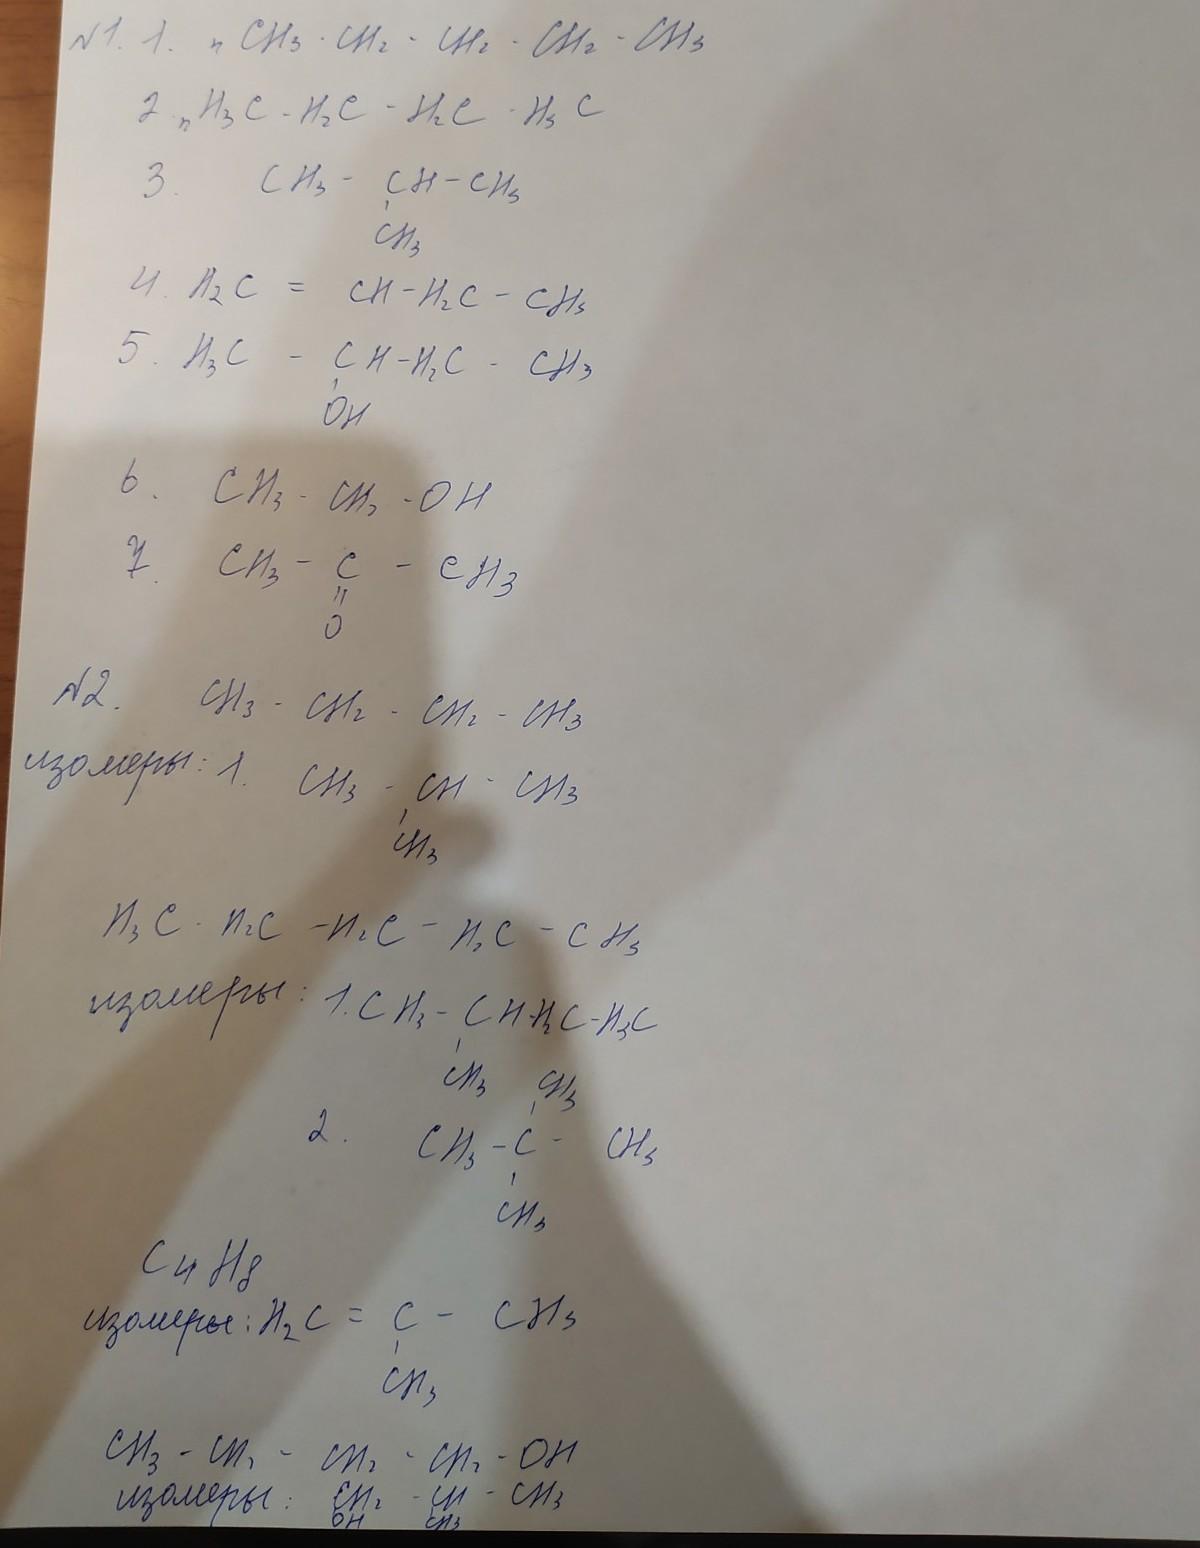 №1. 1. n CH3 - CH2 - CH2 - CH2 - CH3
2. n H3C - H2C - H2C - H3C
3. CH3 - CH - CH3
CH3
4. H2C = CH - H2C - CH3
5. H3C - CH - H2C - CH3
OH
6. CH3 - CH2 - OH
7. CH3 - C - CH3
O
№2. CH3 - CH2 - CH2 - CH3
изомеры: 1. CH3 - CH - CH3
CH3
H3C - H2C - H2C - H2C - CH3
изомеры: 1. CH3 - CH - H2C - H3C
CH3 CH3
2. CH3 - C - CH3
CH3
C4H8
изомеры: H2C = C - CH3
CH3
CH3 - CH2 - CH2 - CH2 - OH
изомеры: CH2 - CH - CH3
OH CH3